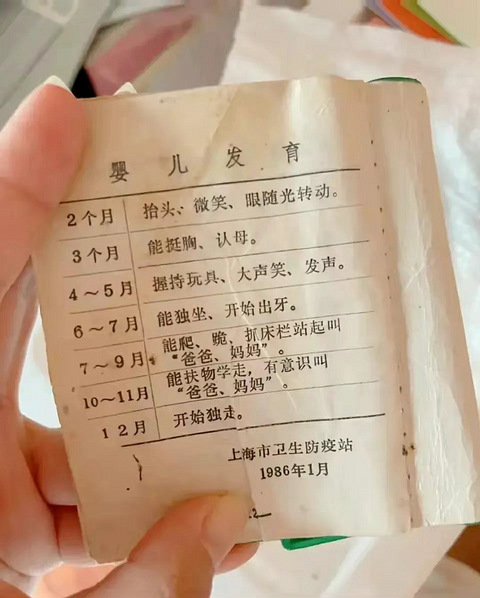 婴儿发育
2个月 抬头、微笑、眼随光转动。
3个月 能挺胸、认母。
4～5月 握持玩具、大声笑、发声。
6～7月 能独坐、开始出牙。
7～9月 能爬、跪、抓床栏站起叫
“爸爸、妈妈”。
10～11月 能扶物学走，有意识叫
“爸爸、妈妈”。
12月 开始独走。
上海市卫生防疫站
1986年1月